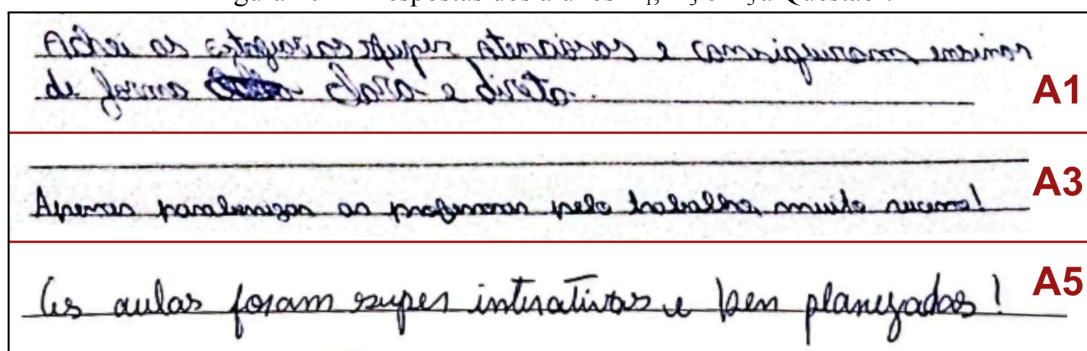 Achei as estagiarias super atenciosas e conseguiram ensinar
de forma clara e direta. A1
Apenas parabenizar as professoras pelo trabalho, muito sucesso! A3
As aulas foram super interativas e bem planejadas! A5